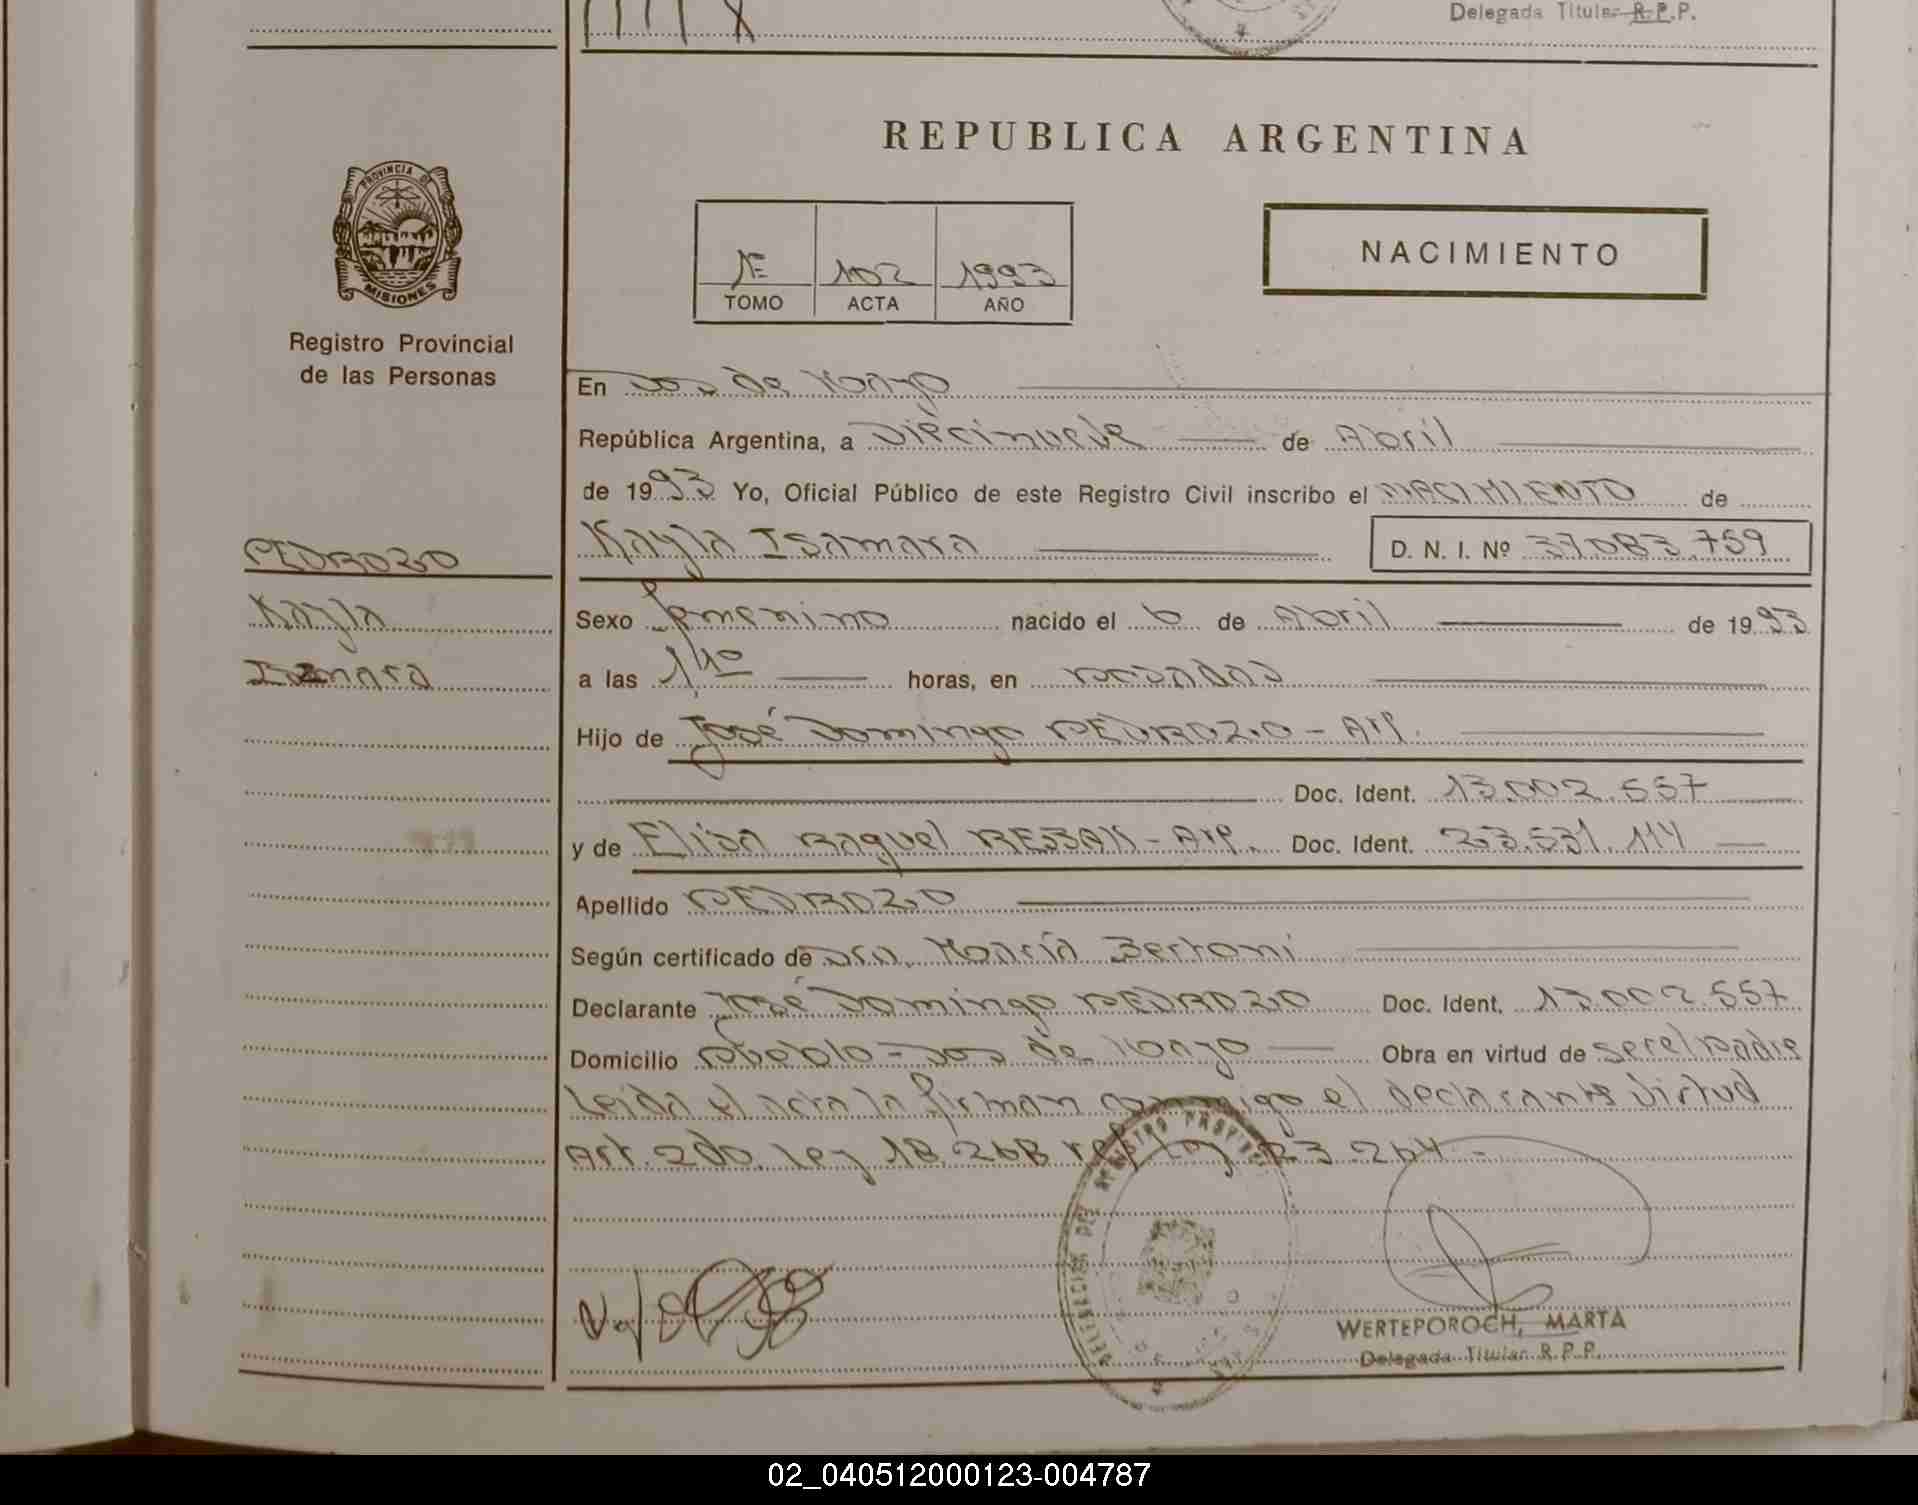 Delegada Titular R.P.P.
REPUBLICA ARGENTINA
PROVINCIA DE
MISIONES
Registro Provincial
de las Personas
1E 102 1993
TOMO ACTA AÑO
NACIMIENTO
En Dos de Mayo
República Argentina, a Diecinueve de Abril
de 1993 Yo, Oficial Público de este Registro Civil inscribo el NACIMIENTO de
Kayla Isamara D. N. I. Nº 37083.759
PEDROZO
Kayla
Isamara
Sexo femenino nacido el 6 de Abril de 1993
a las 11 10 horas, en Posadas
Hijo de José Domingo PEDROZO - Arg.
Doc. Ident. 13.002.557
y de Elisa Raquel - Arg. Doc. Ident. 23.531.114
Apellido PEDROZO
Según certificado de Dra. María Bertoni
Declarante José Domingo PEDROZO Doc. Ident. 13.002.557
Domicilio Pueblo - Dos de Mayo Obra en virtud de ser el Padre
Leida el acta la firman conmigo el declarante virtud
Art. 2do. Ley 18.268 ref Ley 23.264 -
DELEGACION DEL REGISTRO PROVINCIAL
WERTEPOROCH, MARTA
Delegada Titular R.P.P.
02_040512000123-004787